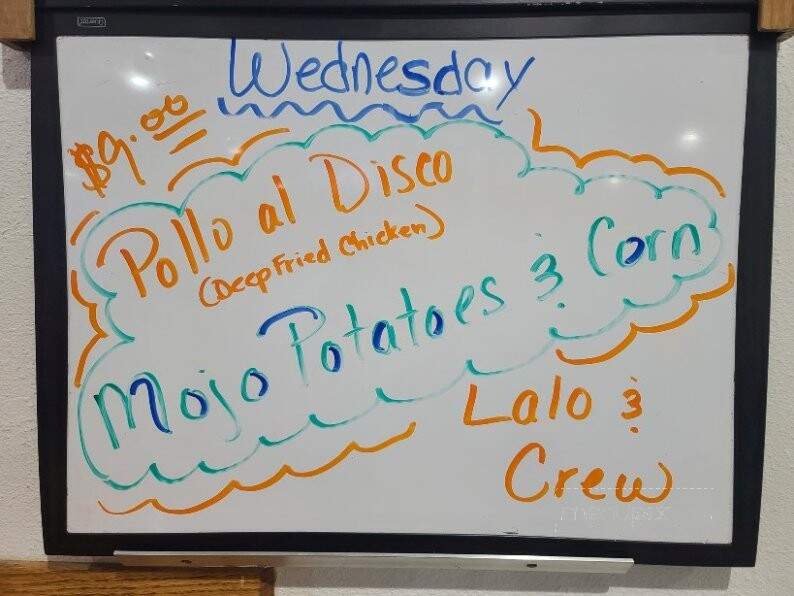 Wednesday
$9.00
Pollo al Disco
(Deep Fried Chicken)
Mojo Potatoes & Corn
Lalo &
Crew